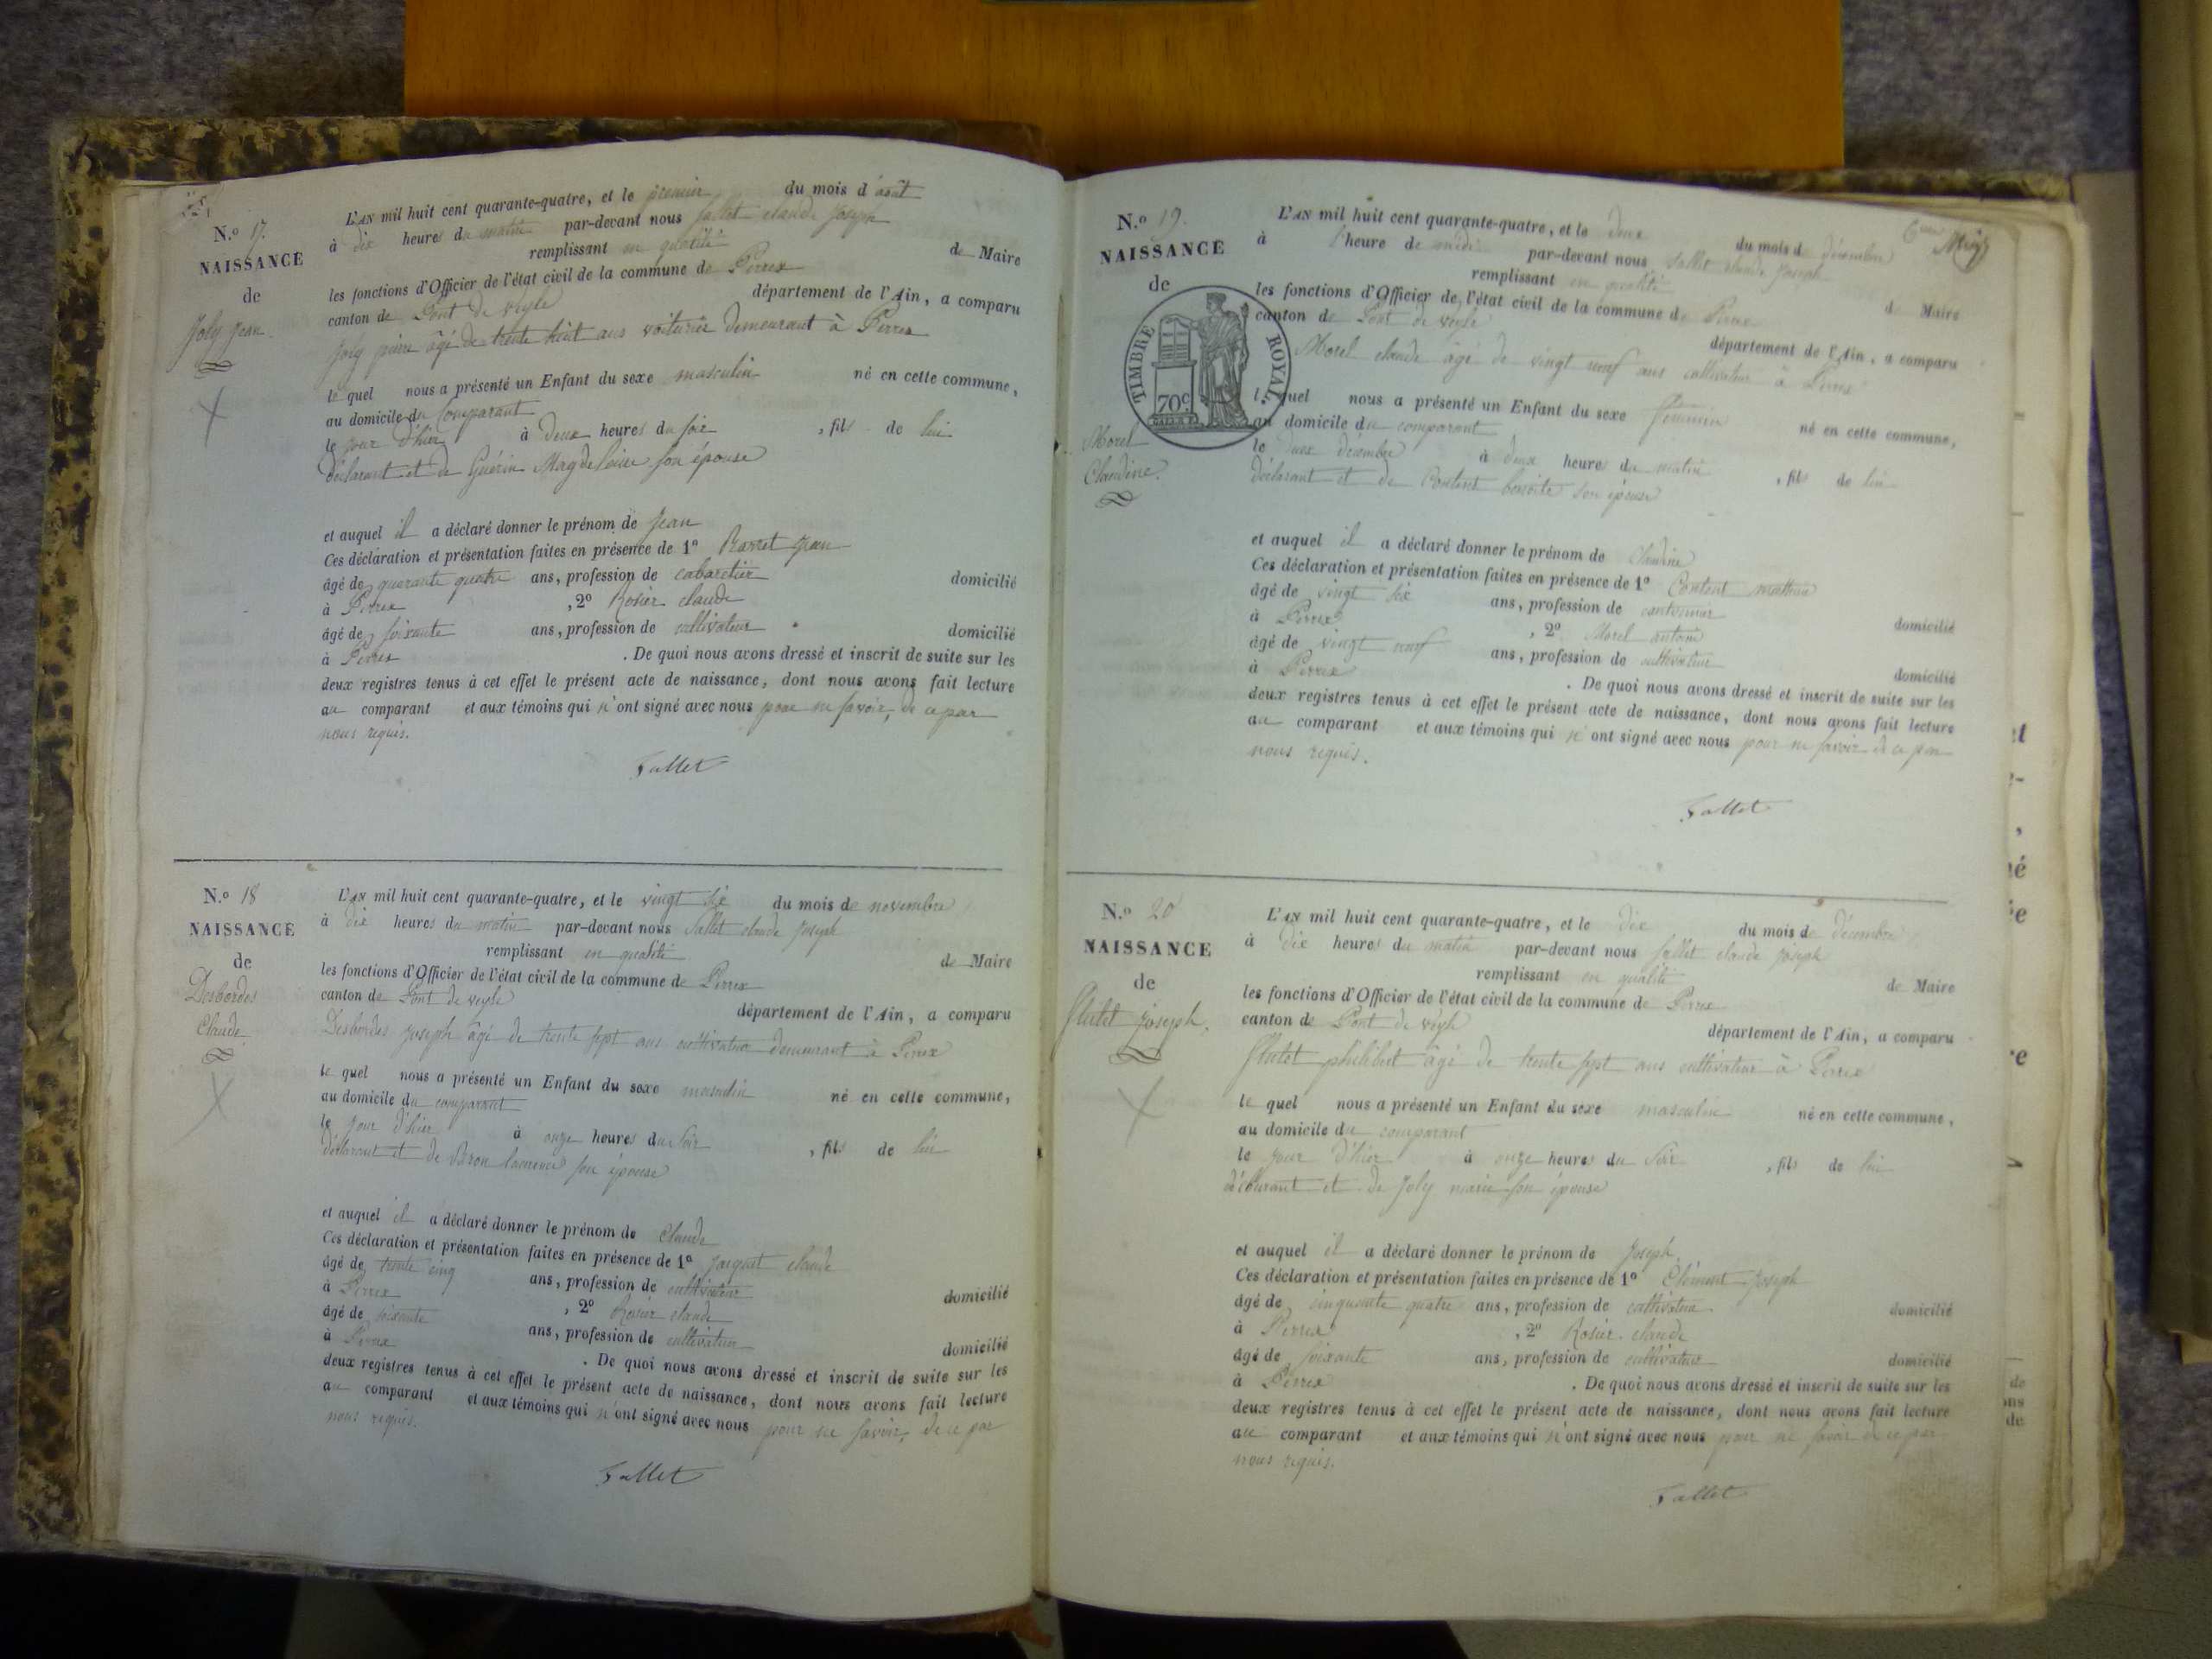 N.o 17.
NAISSANCE
de
Joly Jean
L'AN mil huit cent quarante-quatre, et le premier du mois d'août
à dix heures du matin par-devant nous Sallet claude Joseph
remplissant en qualité de Maire
les fonctions d'Officier de l'état civil de la commune de Perrex
canton de Pont de veyle département de l'Ain, a comparu
Joly pierre âgé de trente huit ans voiturier demeurant à Perrex
le quel nous a présenté un Enfant du sexe masculin né en cette commune,
au domicile du Comparant
le jour d'hier à Deux heures du soir, fils de lui
déclarant et de Guérin Magdeleine son épouse
et auquel il a déclaré donner le prénom de Jean
Ces déclaration et présentation faites en présence de 1o Jean
âgé de quarante quatre ans, profession de cabaretier domicilié
à Perrex, 2o Rosier claude
âgé de soixante ans, profession de cultivateur domicilié
à Perrex. De quoi nous avons dressé et inscrit de suite sur les
deux registres tenus à cet effet le présent acte de naissance, dont nous avons fait lecture
au comparant et aux témoins qui n'ont signé avec nous pour ne savoir, de ce par
nous requis.
Sallet
N.o 18
NAISSANCE
de
Desbordes
Claude
L'AN mil huit cent quarante-quatre, et le vingt six du mois de novembre
à dix heures du matin par-devant nous Sallet claude Joseph
remplissant en qualité de Maire
les fonctions d'Officier de l'état civil de la commune de Perrex
canton de Pont de veyle département de l'Ain, a comparu
Desbordes Joseph âgé de trente sept ans cultivateur demeurant à Perrex
le quel nous a présenté un Enfant du sexe masculin né en cette commune,
au domicile du comparant
le jour d'hier à onze heures du soir, fils de lui
déclarant et de laurence son épouse
et auquel il a déclaré donner le prénom de Claude
Ces déclaration et présentation faites en présence de 1o Jacquet claude
âgé de trente cinq ans, profession de cultivateur domicilié
à Perrex, 2o Rosier claude
âgé de soixante ans, profession de cultivateur domicilié
à Perrex. De quoi nous avons dressé et inscrit de suite sur les
deux registres tenus à cet effet le présent acte de naissance, dont nous avons fait lecture
au comparant et aux témoins qui n'ont signé avec nous pour ne savoir, de ce par
nous requis.
Sallet
N.o 19.
NAISSANCE
de
TIMBRE ROYAL.
70c
Morel
Claudine.
L'AN mil huit cent quarante-quatre, et le deux du mois de décembre
à l'heure de midi par-devant nous Sallet claude Joseph
remplissant en qualité de Maire
les fonctions d'Officier de l'état civil de la commune de Perrex
canton de Pont de veyle département de l'Ain, a comparu
Morel claude âgé de vingt neuf ans cultivateur à Perrex
le quel nous a présenté un Enfant du sexe féminin né en cette commune,
au domicile du comparant
le deux décembre à deux heures du matin, fils de lui
déclarant et de Content benoite son épouse
et auquel il a déclaré donner le prénom de Claudine
Ces déclaration et présentation faites en présence de 1o Content mathieu
âgé de vingt six ans, profession de cantonnier domicilié
à Perrex, 2o Morel antoine
âgé de vingt neuf ans, profession de cultivateur domicilié
à Perrex. De quoi nous avons dressé et inscrit de suite sur les
deux registres tenus à cet effet le présent acte de naissance, dont nous avons fait lecture
au comparant et aux témoins qui n'ont signé avec nous pour ne savoir de ce par
nous requis.
Sallet
N.o 20
NAISSANCE
de
Joseph.
L'AN mil huit cent quarante-quatre, et le dix du mois de décembre
à dix heures du matin par-devant nous Sallet claude Joseph
remplissant en qualité de Maire
les fonctions d'Officier de l'état civil de la commune de Perrex
canton de Pont de veyle département de l'Ain, a comparu
philibert âgé de trente sept ans cultivateur à Perrex
le quel nous a présenté un Enfant du sexe masculin né en cette commune,
au domicile du comparant
le jour d'hier à onze heures du soir, fils de lui
déclarant et de Joly marie son épouse
et auquel il a déclaré donner le prénom de Joseph
Ces déclaration et présentation faites en présence de 1o Clément Joseph
âgé de cinquante quatre ans, profession de cultivateur domicilié
à Perrex, 2o Rosier claude
âgé de soixante ans, profession de cultivateur domicilié
à Perrex. De quoi nous avons dressé et inscrit de suite sur les
deux registres tenus à cet effet le présent acte de naissance, dont nous avons fait lecture
au comparant et aux témoins qui n'ont signé avec nous pour ne savoir de ce par
nous requis.
Sallet